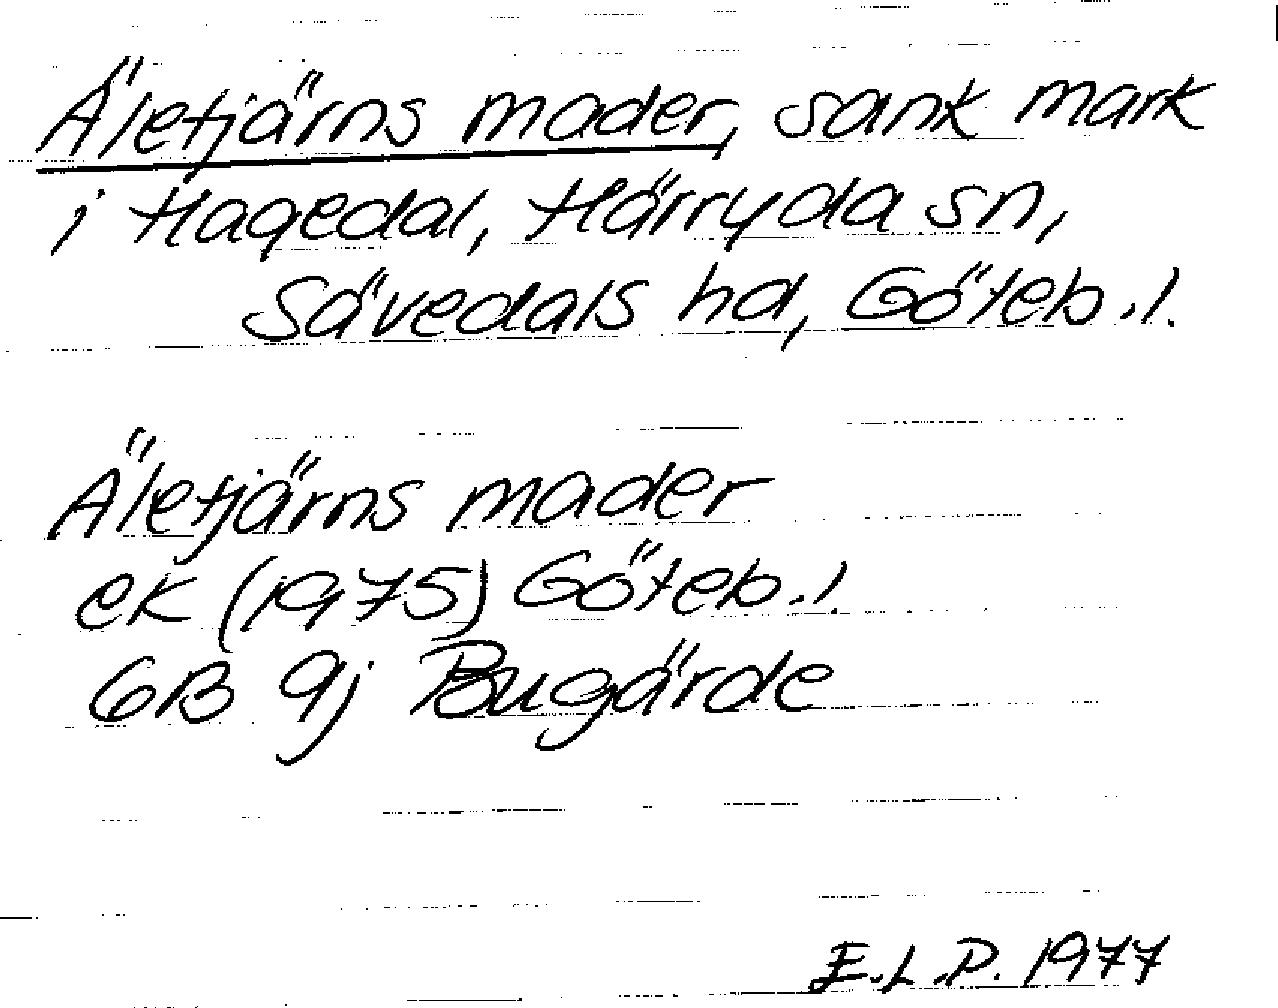 Äletjärns mader, sank mark
i Hagedal, Härryda sn,
Sävedals hd, Göteb.l.
Äletjärns mader
ek (1975) Göteb.l.
6B 9j Bugärde
E.L.P. 1977